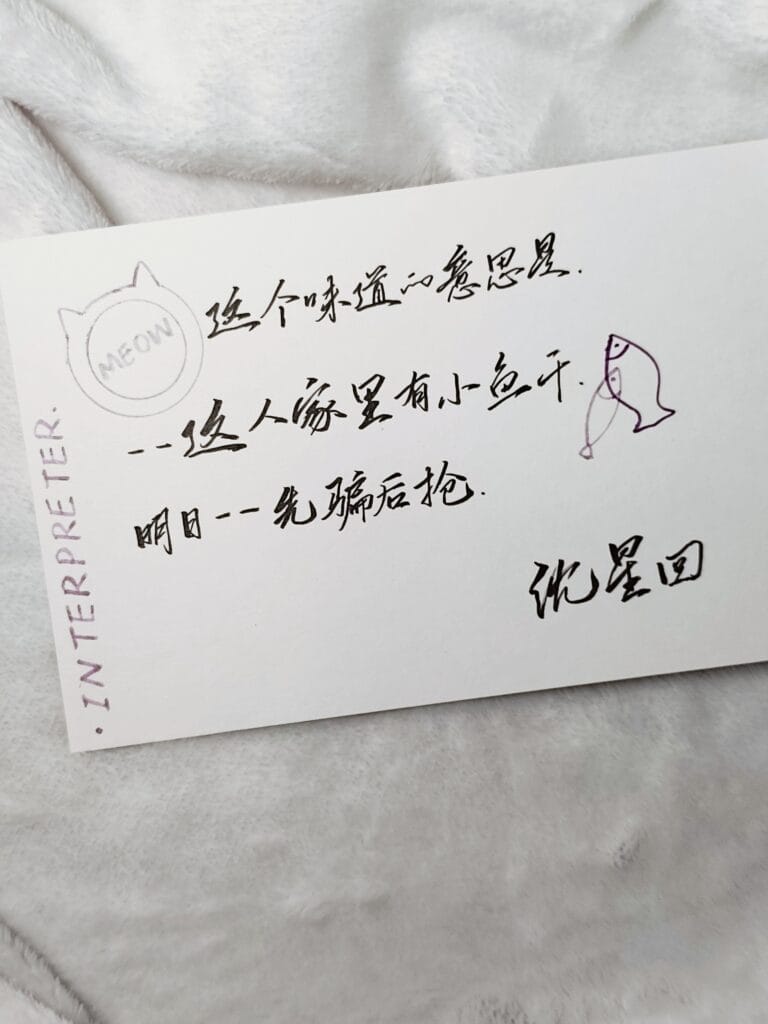 MEOW
这个味道的意思是.
--这人家里有小鱼干.
明日--先骗后抢.
沈星回
·INTERPRETER.